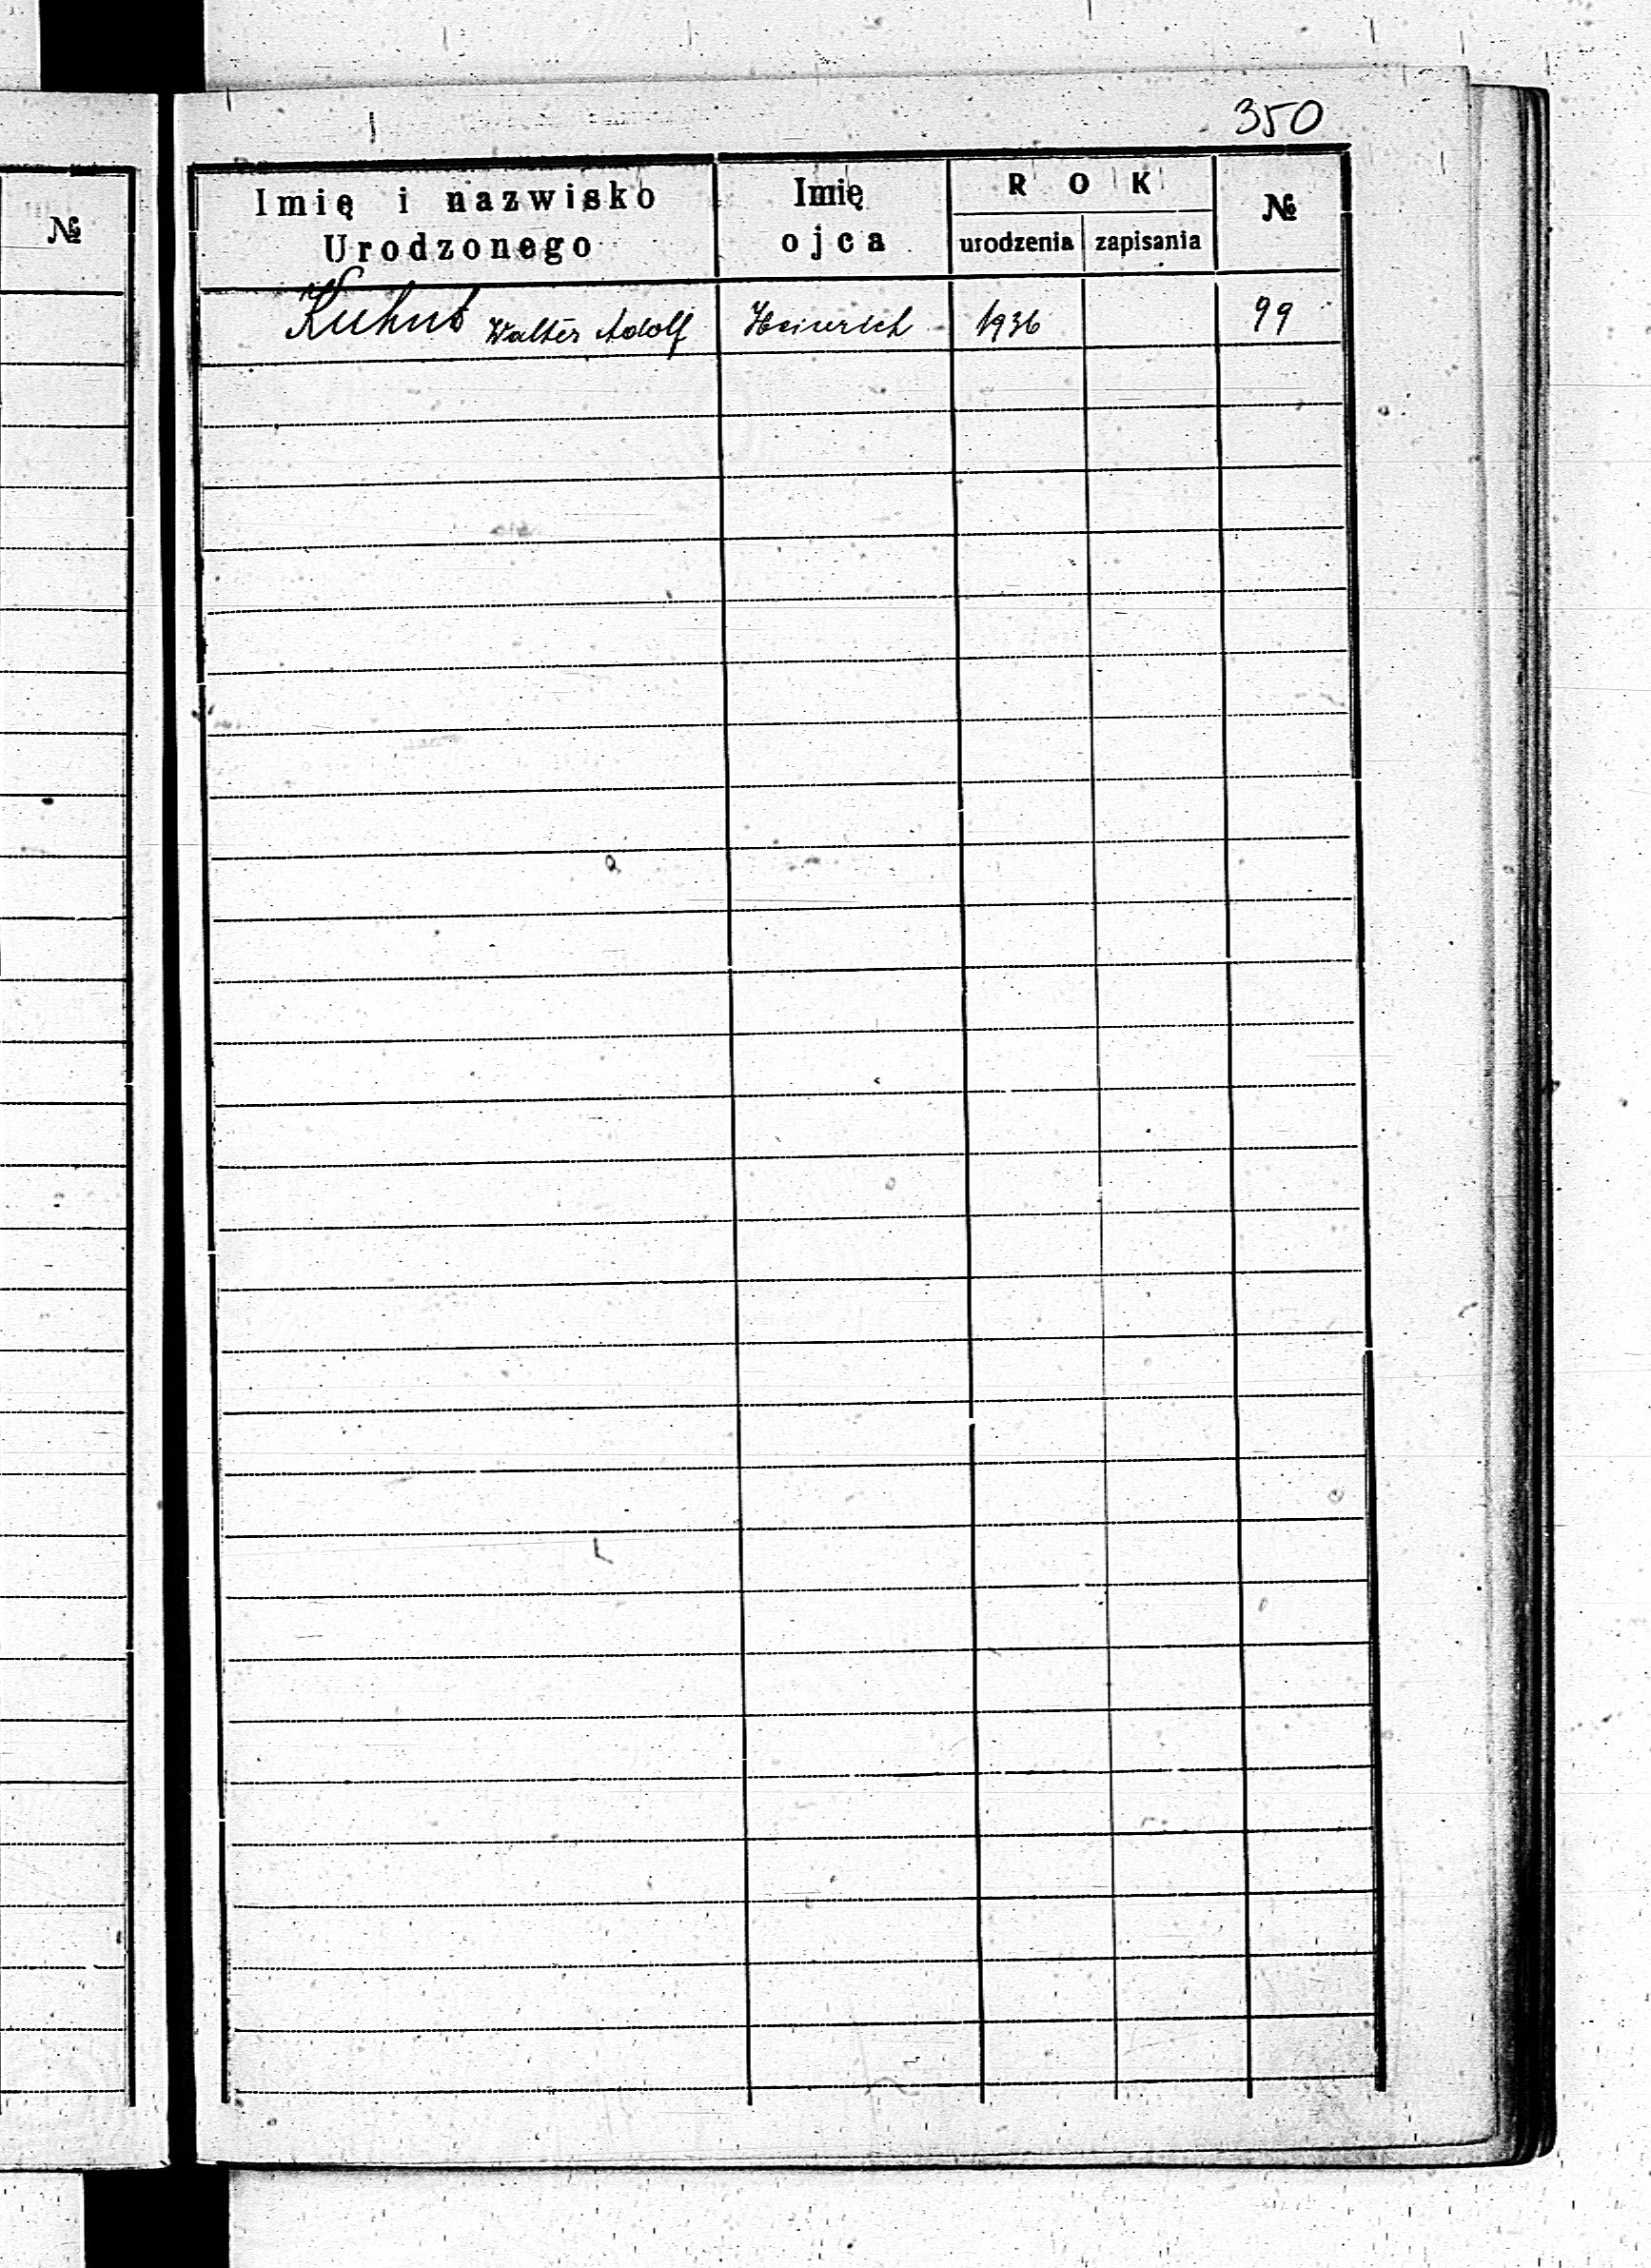 350
№
Imię i nazwisko Urodzonego
Imię ojca
ROK
urodzenia
zapisania
№
Walter Adolf
Heinrich
1936
99